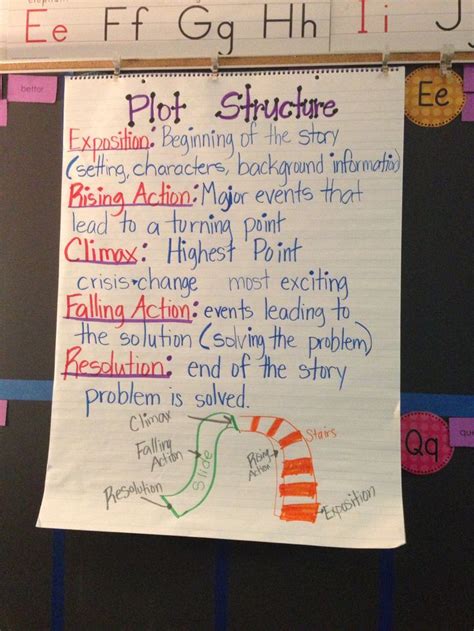 Ee Ff Gg Hh Ii J
better
Ee
Plot Structure
Exposition: Beginning of the story
(setting, characters, background information)
Rising Action: Major events that
lead to a turning point
Climax: Highest Point
crisis•change most exciting
Falling Action: events leading to
the solution (solving the problem)
Resolution: end of the story
problem is solved.
Climax
Falling
Action
Slide
Resolution
Stairs
Rising
Action
Exposition
Qq